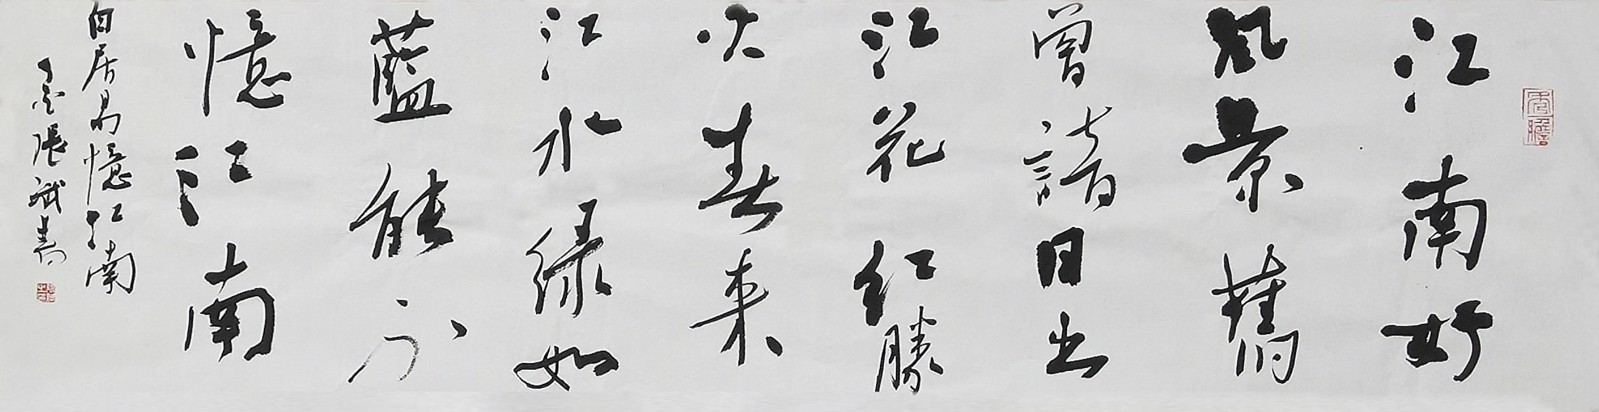 江南好
風景舊
曾諳日出
江花紅勝
火春來
江水綠如
藍能不
憶江南
白居易憶江南
張斌書